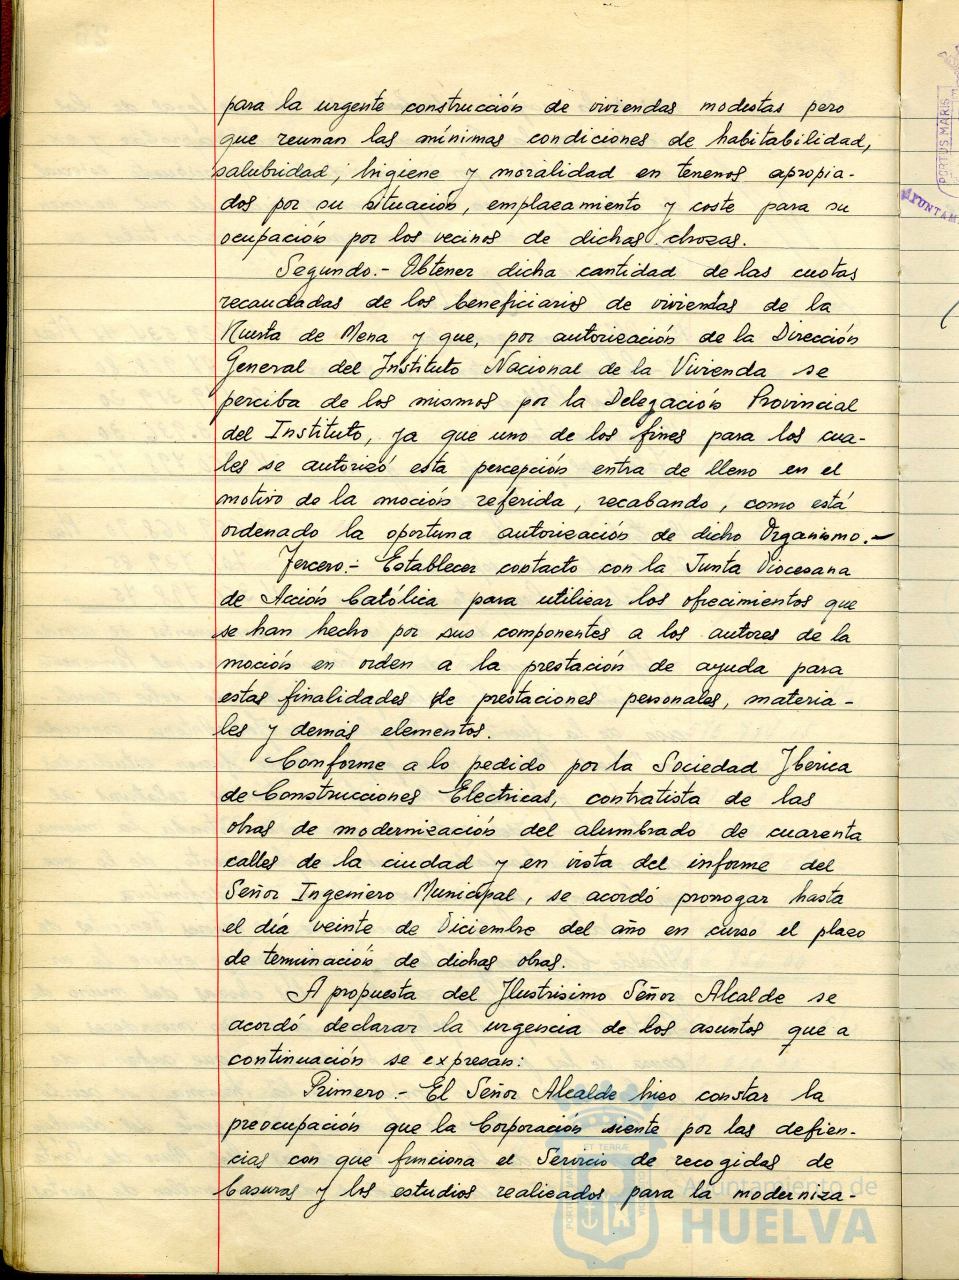 para la urgente construcción de viviendas modestas pero
que reunan las mínimas condiciones de habitabilidad,
salubridad, higiene y moralidad en terrenos apropia-
dos por su situación, emplazamiento y coste para su
ocupación por los vecinos de dichas chozas.
Segundo.- Obtener dicha cantidad de las cuotas
recaudadas de los beneficiarios de viviendas de la
Huerta de Mena y que, por autorización de la Dirección
General del Instituto Nacional de la Vivienda se
perciba de los mismos por la Delegación Provincial
del Instituto, ya que uno de los fines para los cua-
les se autorizó esta percepción entra de lleno en el
motivo de la moción referida, recabando, como está
ordenado la oportuna autorización de dicho Organismo.-
Tercero.- Establecer contacto con la Junta Diocesana
de Acción Católica para utilizar los ofrecimientos que
se han hecho por sus componentes a los autores de la
moción en orden a la prestación de ayuda para
estas finalidades de prestaciones personales, materia-
les y demás elementos.
Conforme a lo pedido por la Sociedad Iberica
de Construcciones Electricas, contratista de las
obras de modernización del alumbrado de cuarenta
calles de la ciudad y en vista del informe del
Señor Ingeniero Municipal, se acordó prorrogar hasta
el día veinte de Diciembre del año en curso el plazo
de terminación de dichas obras.
A propuesta del Ilustrisimo Señor Alcalde se
acordó declarar la urgencia de los asuntos que a
continuación se expresan:
Primero.- El Señor Alcalde hizo constar la
preocupación que la Corporación siente por las defien-
cias con que funciona el Servicio de recogidas de
basuras y los estudios realizados para la moderniza-
Ayuntamiento de
HUELVA
PORTUS MARIS